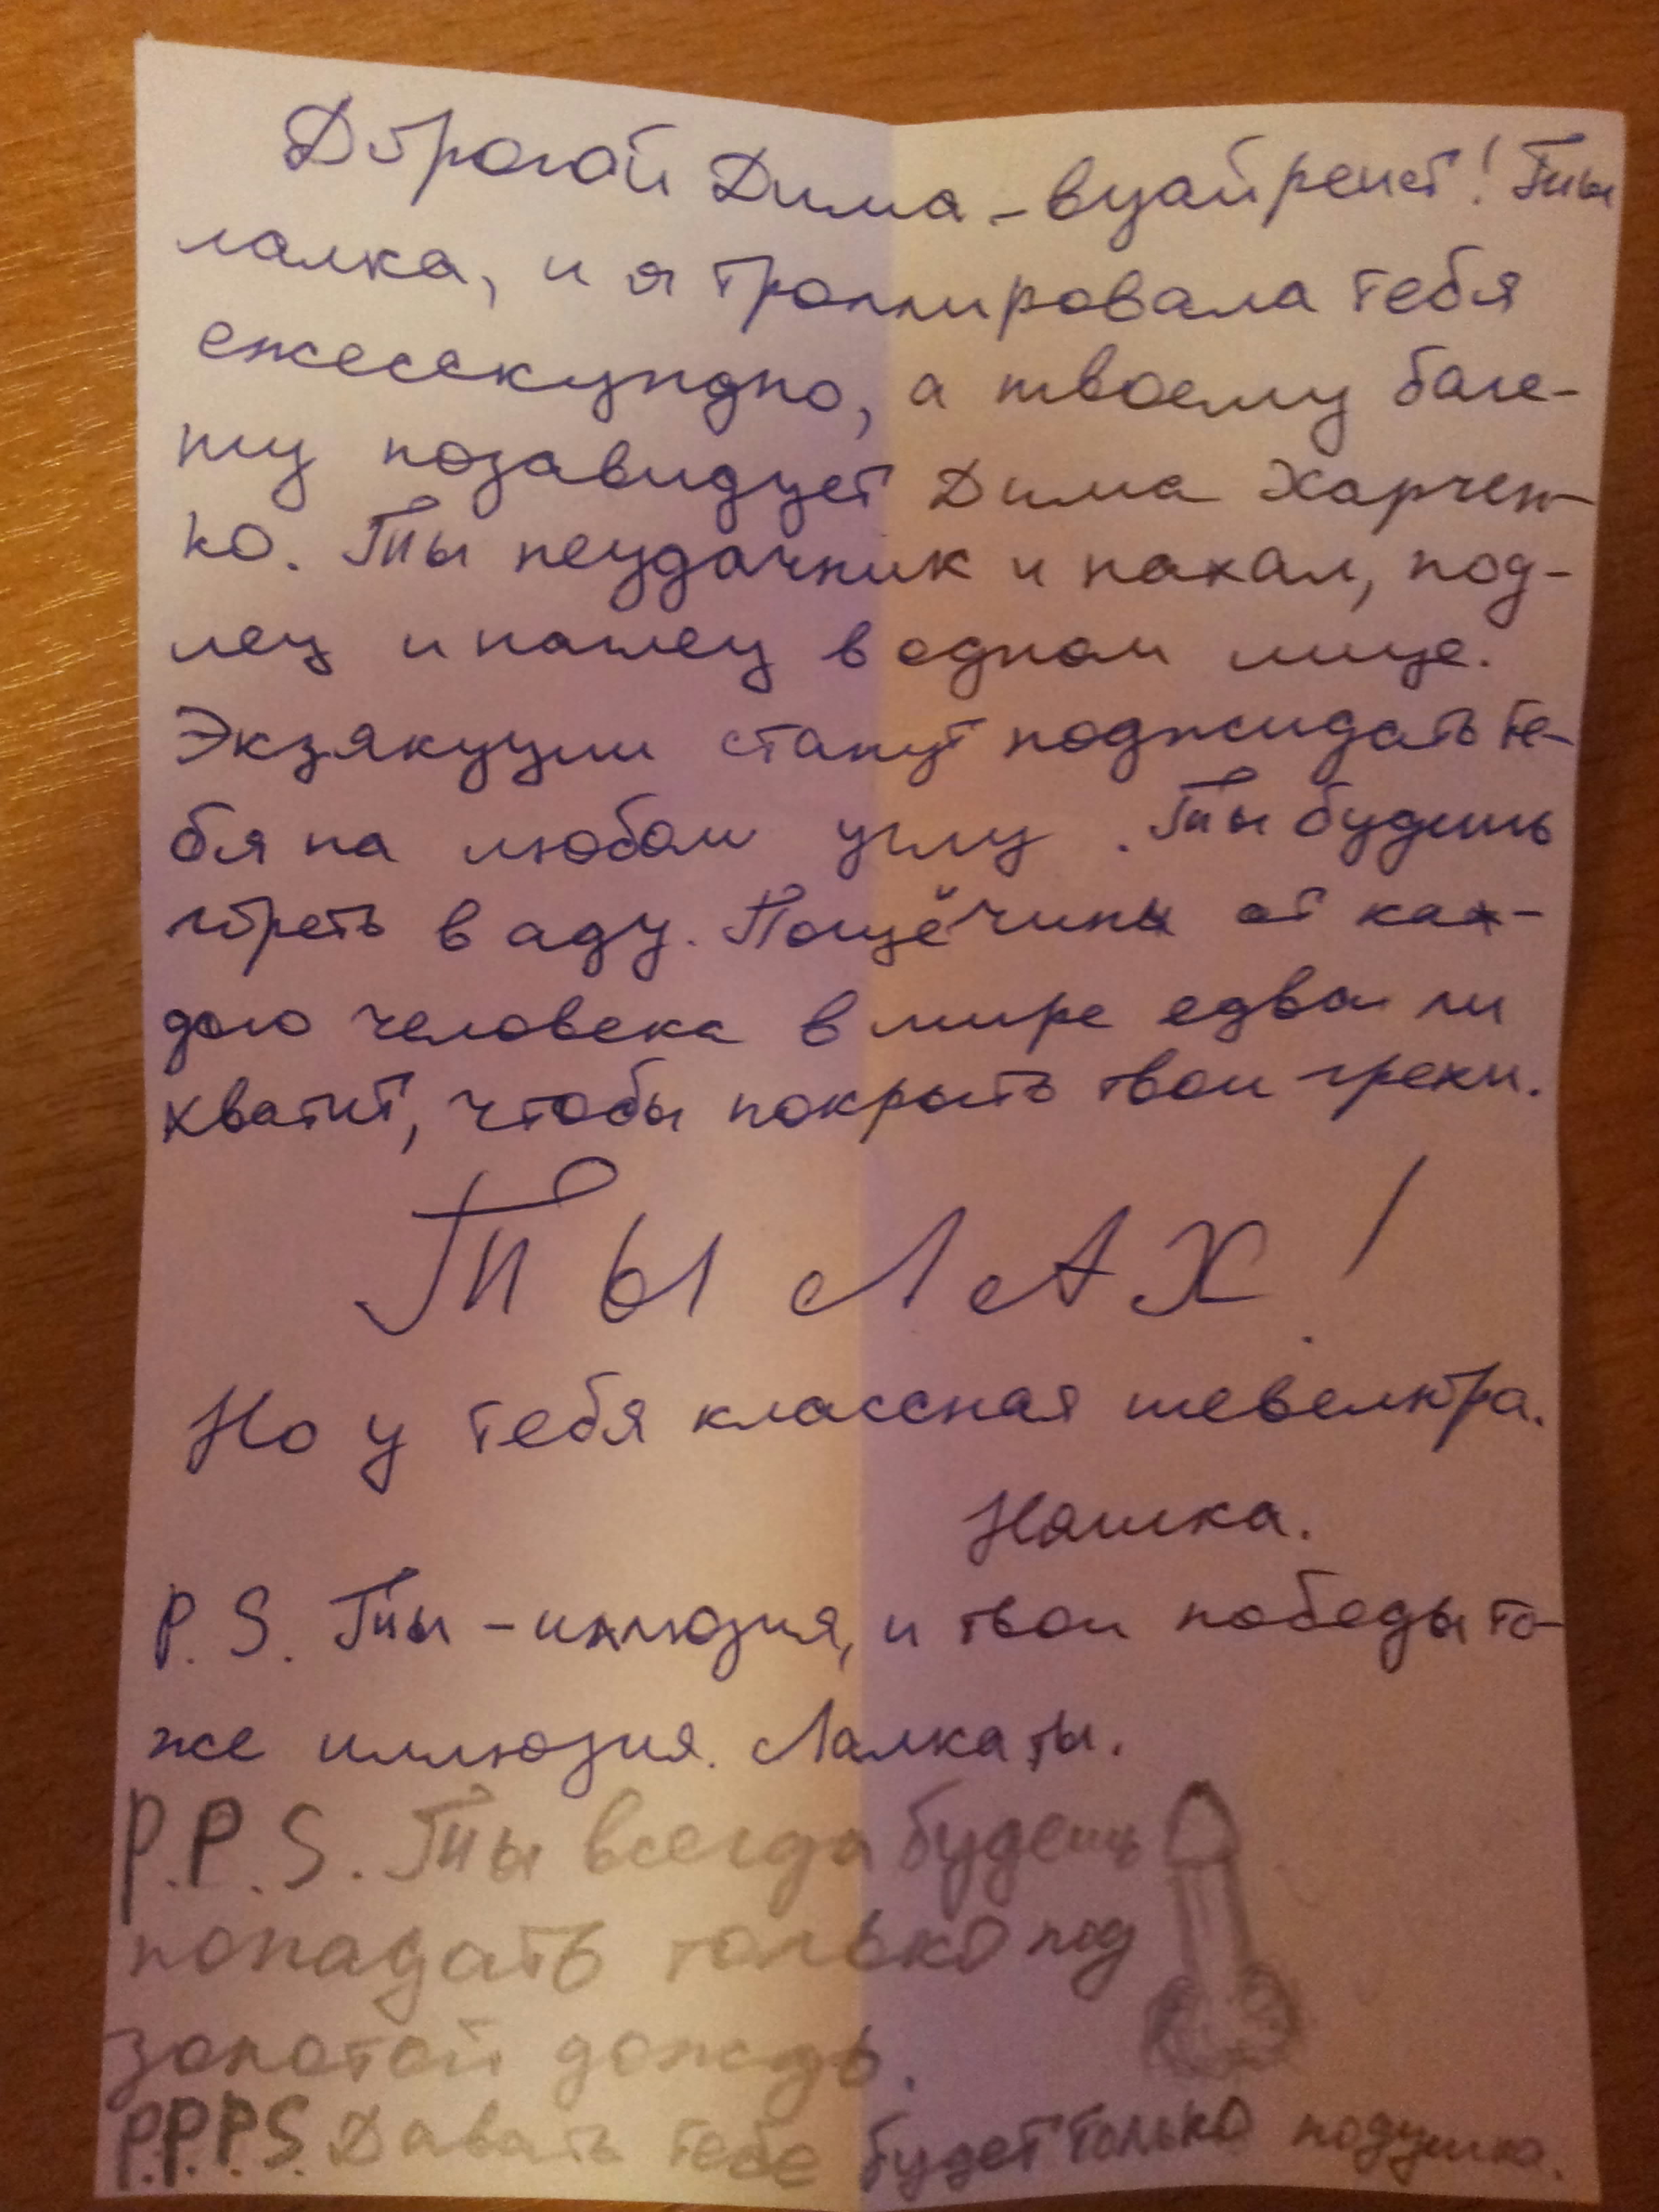 Дорогой Дима - вуайрейст! Ты
лалка, и я троллировала тебя
ежесекундно, а твоему баге-
ту позавидует Дима Харчен-
ко. Ты неудачник и нахал, под-
лец и наглец в одном лице.
Экзякуции станут поджидать те-
бя на любом углу. Ты будешь
гореть в аду. Пощёчины от каж-
дого человека в мире едва ли
хватит, чтобы покрыть твои грехи.
ТЫ ЛАХ!
Но у тебя классная шевелюра.
Няшка.
P.S. Ты - иллюзия, и твои победы то-
же иллюзия. Лалка ты.
P.P.S. Ты всегда будешь
попадать только под
золотой дождь.
P.P.P.S. Давать тебе будет только подушка.